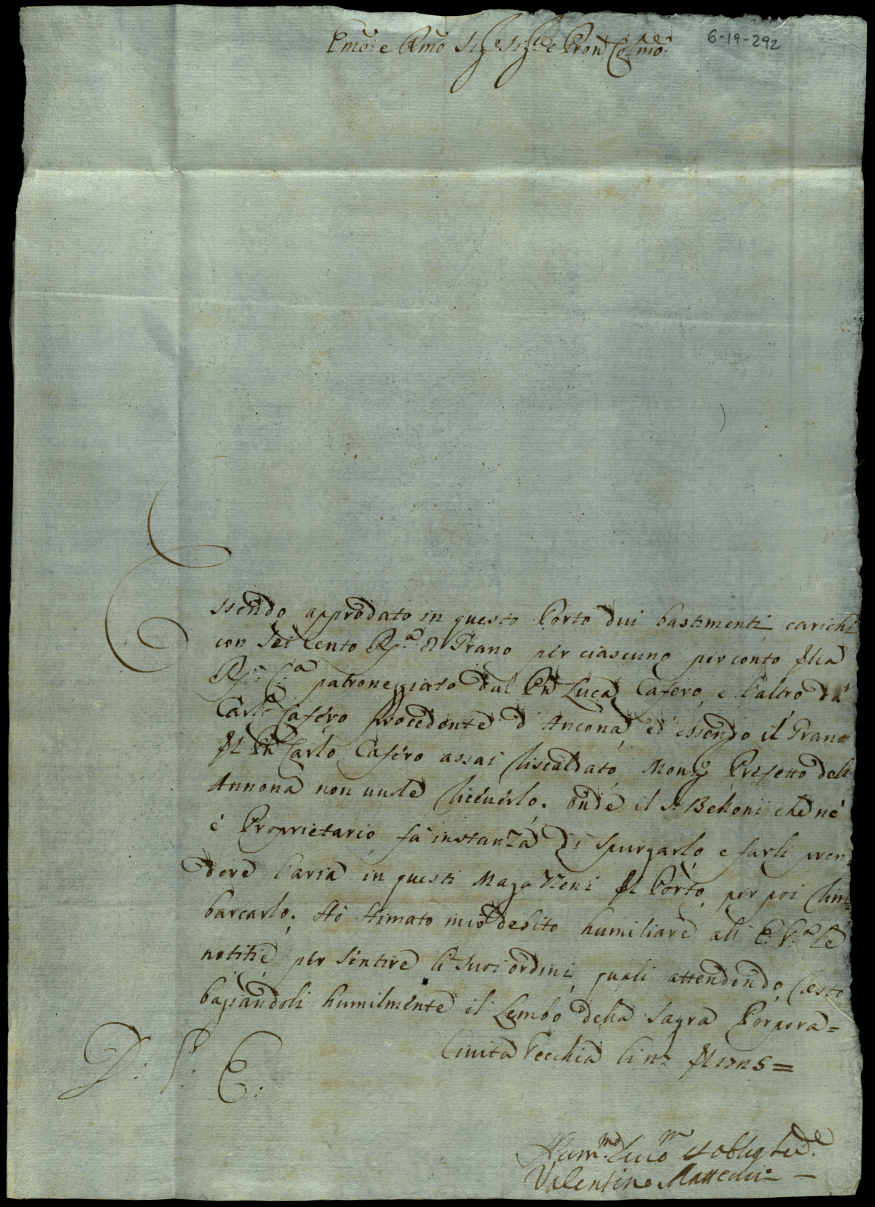 Emo: e Rmo Sig.e Sig.e e Pron Colmo:
6-19-292
Essendo approdato in questo Porto dui bastimenti carichi
con sei cento R.a di Grano per ciascuno per conto della
R. C.a patroneggiato dal Pn Luca Cafiero, e l'altro da
Carlo Cafiero procedente d'Ancona, ed essendo il Grano
del Pn Carlo Cafiero assai riscaldato, Monsg. Prefetto dell
Annona non vuole riceverlo. onde il Sr. Belloni che nè
è Proprietario, fà instanza di spurgarlo, e farli pren
dere l'aria in questi Magazzeni del Porto, per poi rim=
barcarlo. Hò stimato mio debito humiliare all E. V.a le
notitie per sentire li suoi ordini, quali attendendo, resto
bagiandoli humilmente il Lembo della Sagra Porpora=
Civita Vecchia li
D: V: E:
Hum.mo
Valentino